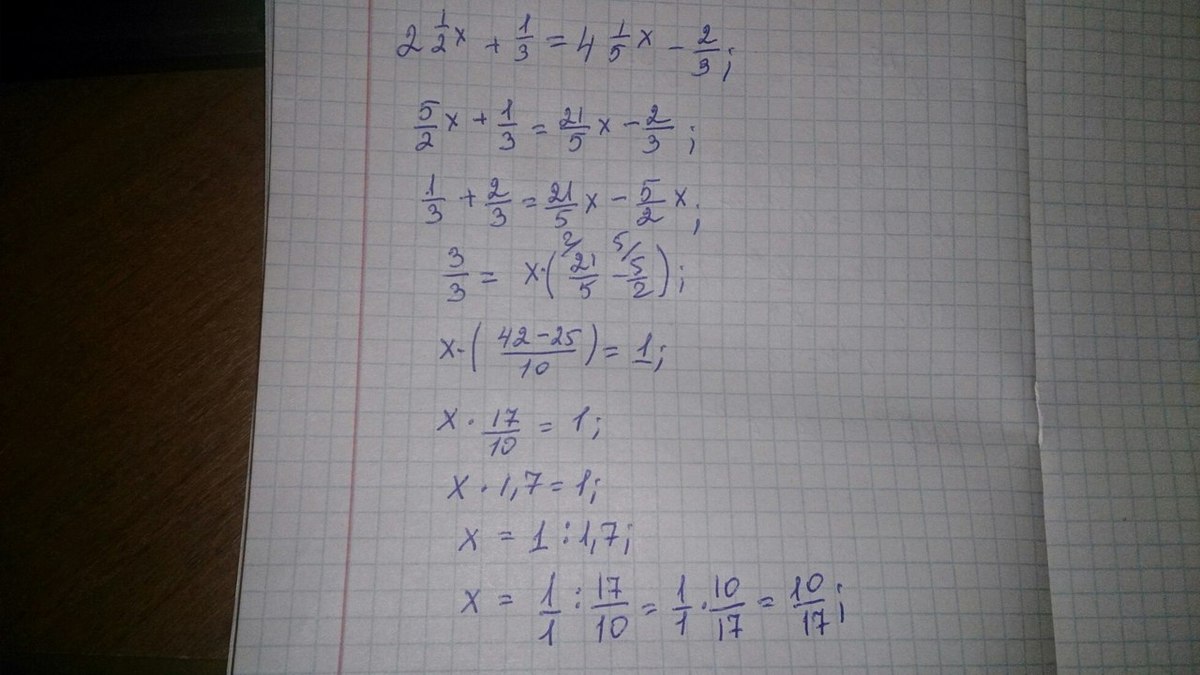 2 1/2 x + 1/3 = 4 1/5 x - 2/3;
5/2 x + 1/3 = 21/5 x - 2/3;
1/3 + 2/3 = 21/5 x - 5/2 x;
3/3 = x · (2/ 21/5 - 5/ 5/2);
x · (42-25/10) = 1;
x · 17/10 = 1;
x · 1,7 = 1;
x = 1 : 1,7;
x = 1/1 : 17/10 = 1/1 · 10/17 = 10/17;